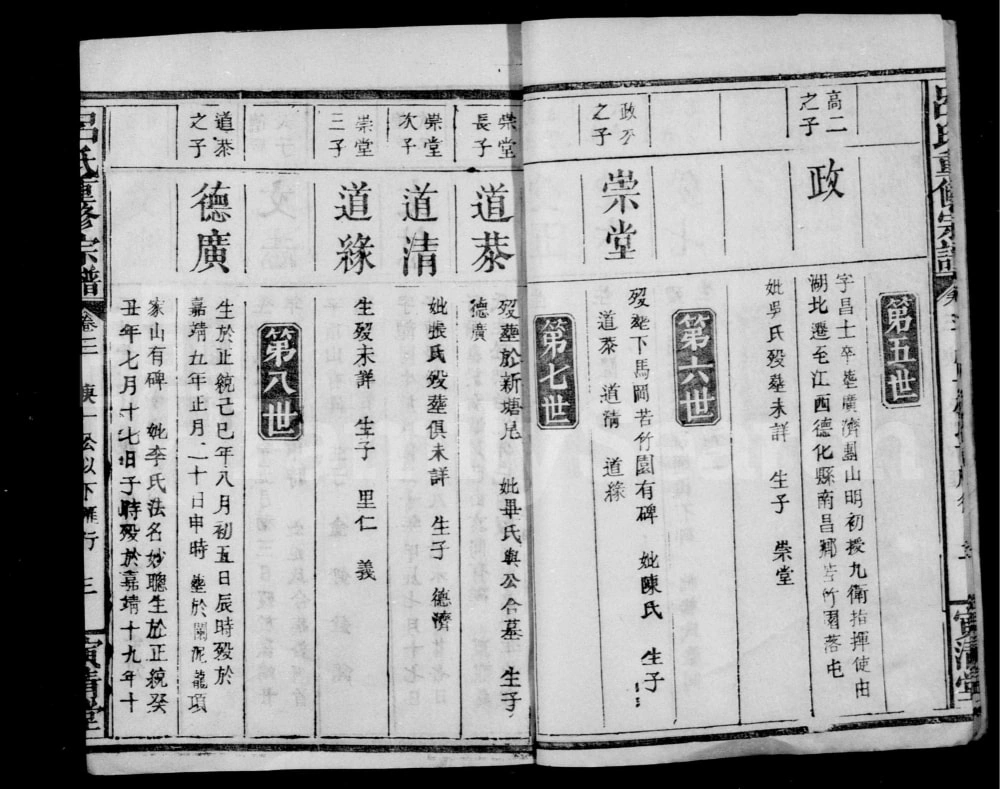 呂氏重修宗譜
第五世
高二之子
政
字昌士卒塟廣濟 山明初授九衛指揮使由
湖北遷至江西德化縣南昌鄉苦竹 落屯
妣吳氏殁塟未詳 生子 崇堂
第六世
政公之子
崇堂
殁塟下馬岡苦竹園有碑 妣陳氏 生子
道泰 道清 道緣
第七世
崇堂長子
道泰
殁塟於新塘尾 妣畢氏與公合墓 生子
德廣
崇堂次子
道清
妣張氏殁塟俱未詳 生子 德濟
崇堂三子
道緣
生殁未詳 生子 里仁 義
第八世
道泰之子
德廣
生於正統己巳年八月初五日辰時殁於
嘉靖九年正月二十日申時 塟於關泥龍項
家山有碑 妣李氏法名妙聰生於正統癸
丑年七月十七日子時殁於嘉靖十九年十
呂氏重修宗譜
卷三
庚一公以下雁行
三
演清堂